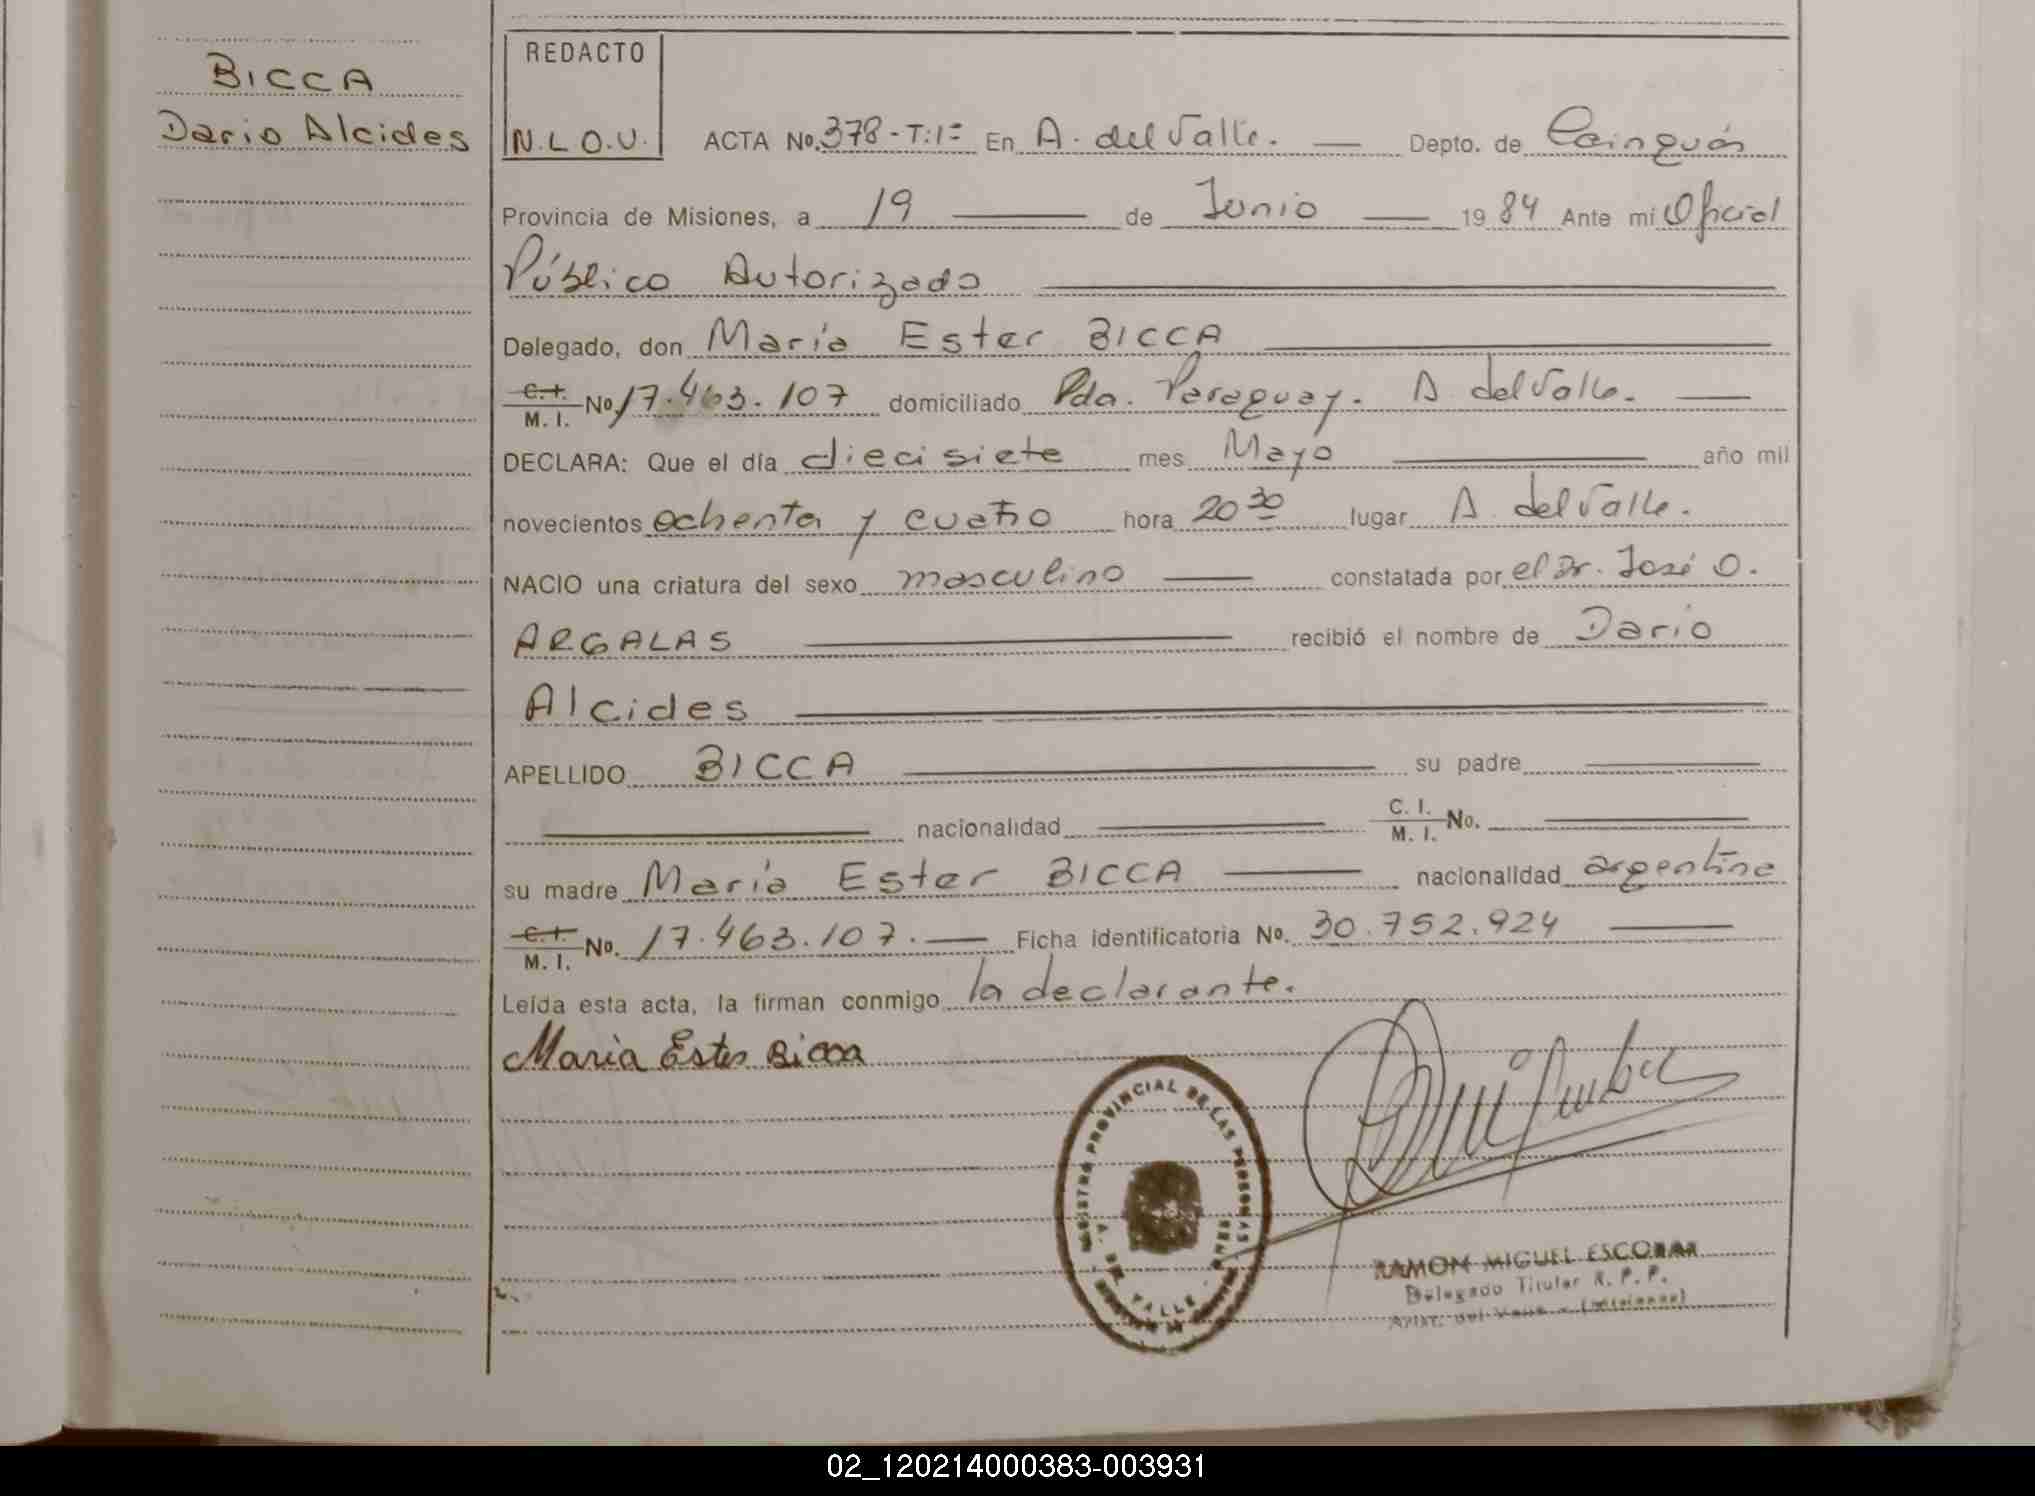 BICCA
Dario Alcides
REDACTO
N.L.O.V.
ACTA No. 378-T:1º En A. del Valle. Depto. de Cainguás
Provincia de Misiones, a 19 de Junio 1984 Ante mi Oficial
Público Autorizado
Delegado, don María Ester BICCA
C.I. M.I. No. 17.463.107 domiciliado Pda. Paraguay. A del Valle.
DECLARA: Que el día diecisiete mes Mayo año mil
novecientos ochenta y cuatro hora 20 30 lugar A. del Valle.
NACIO una criatura del sexo masculino constatada por el Dr. José O.
ARGALAS recibió el nombre de Dario
Alcides
APELLIDO BICCA su padre
nacionalidad C. I. M. I. No.
su madre María Ester BICCA nacionalidad argentina
C.I. M. I. No. 17.463.107. Ficha identificatoria No. 30.752.924
Leída esta acta, la firman conmigo la declarante.
Maria Ester Bicca
REGISTRO PROVINCIAL DE LAS PERSONAS
A. DEL VALLE
RAMON MIGUEL ESCOBAR
Delegado Titular R. P. P.
Arist. del Valle - (Misiones)
02_120214000383-003931